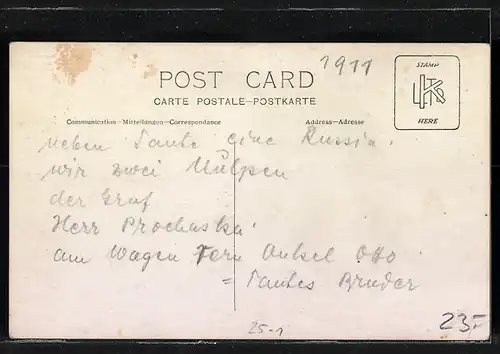 1911
POST CARD
CARTE POSTALE-POSTKARTE
Communication-Mitteilungen-Correspondance
Address-Adresse
STAMP
HERE
neben Tante eine Russin.
wir zwei Nulpen
der Graf
Herr Prochaska
am Wagen Fern Onkel Otto
= Tantes Bruder
25-1
23.-